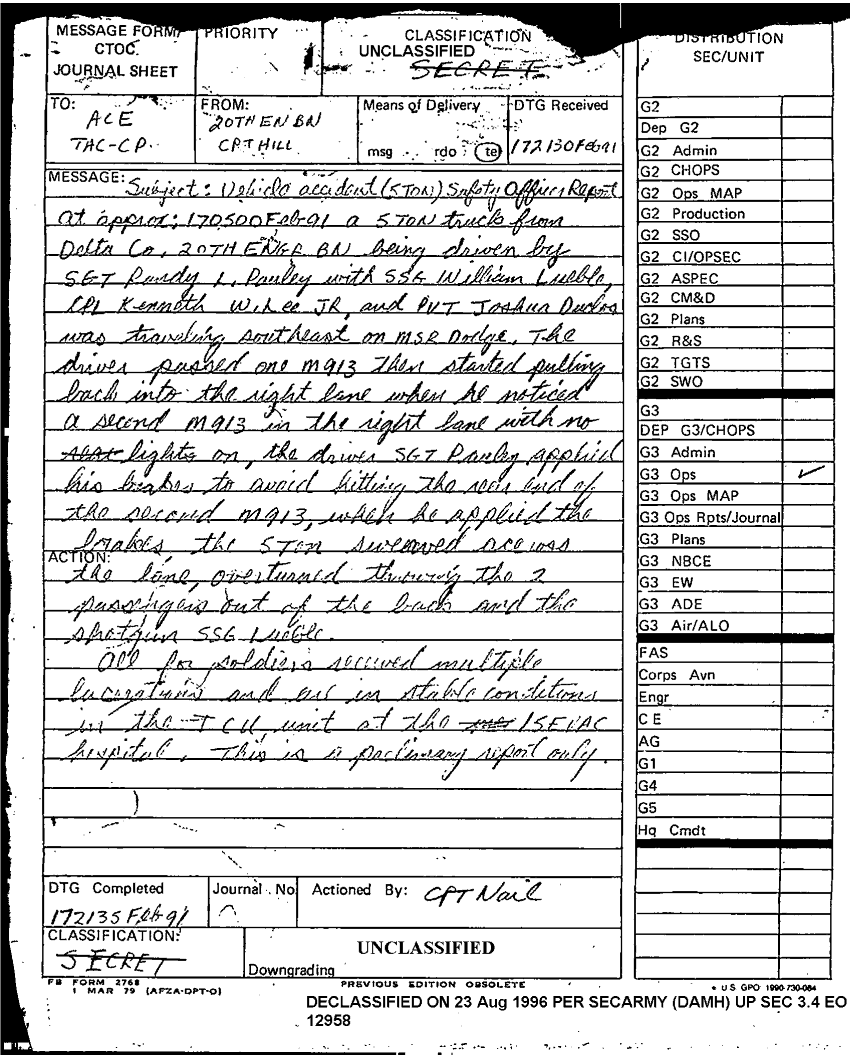 MESSAGE FORM/
CTOC
JOURNAL SHEET
PRIORITY
CLASSIFICATION
UNCLASSIFIED
SECRET
DISTRIBUTION
SEC/UNIT
TO:
ACE
TAC-CP
FROM:
20TH EN BN
CPT HILL
Means of Delivery
msg rdo te
DTG Received
172130Feb91
MESSAGE:
Subject: Vehicle accident (5TON) Safety Officer Report
at approx: 170500Feb91 a 5TON trucks from
Delta Co, 20TH ENGR BN being driven by
SGT Randy L. Pauley with SSG William Lueble,
CPL Kenneth W. Lee JR, and PVT Joshua
was traveling southeast on MSR Dodge. The
driver passed one M913 then started pulling
back into the right lane when he noticed
a second M913 in the right lane with no
lights on, the driver SGT Pauley applied
his brakes to avoid hitting the rear end of
the second M913, when he applied the
brakes, the 5Ton swerved across
ACTION:
the lane, overturned throwing the 2
passengers out of the back and the
shotgun SSG Lueble.
All for soldiers received multiple
lacerations and are in stable conditions
in the ICU unit at the 15EVAC
hospital. This is a prelimary report only.
DTG Completed
172135Feb91
Journal No
Actioned By:
CPT Nail
CLASSIFICATION:
SECRET
UNCLASSIFIED
Downgrading
FB FORM 2768
1 MAR 79 (AFZA-DPT-O)
PREVIOUS EDITION OBSOLETE
U S GPO 1990-730-084
DECLASSIFIED ON 23 Aug 1996 PER SECARMY (DAMH) UP SEC 3.4 EO
12958
G2
Dep G2
G2 Admin
G2 CHOPS
G2 Ops MAP
G2 Production
G2 SSO
G2 CI/OPSEC
G2 ASPEC
G2 CM&D
G2 Plans
G2 R&S
G2 TGTS
G2 SWO
G3
DEP G3/CHOPS
G3 Admin
G3 Ops ✓
G3 Ops MAP
G3 Ops Rpts/Journal
G3 Plans
G3 NBCE
G3 EW
G3 ADE
G3 Air/ALO
FAS
Corps Avn
Engr
C E
AG
G1
G4
G5
Hq Cmdt